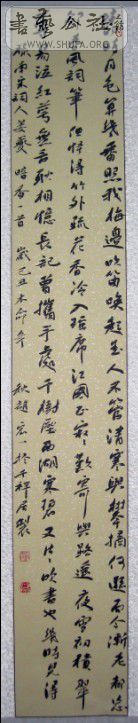 書藝公社
WWW.SHUFA.ORG
舊時月色算幾番照我梅邊吹笛喚起玉人不管清寒與攀摘何遜而今漸老都忘
却春風詞筆但怪得竹外疏花香冷入瑤席江國正寂寂歎寄與路遙夜雪初積翠
尊易泣紅萼無言耿相憶長記曾攜手處千樹壓西湖寒碧又片片吹盡也幾時見得
南宋詞人姜夔暗香一首 歲己丑本命年秋趙宏一於千祥居製